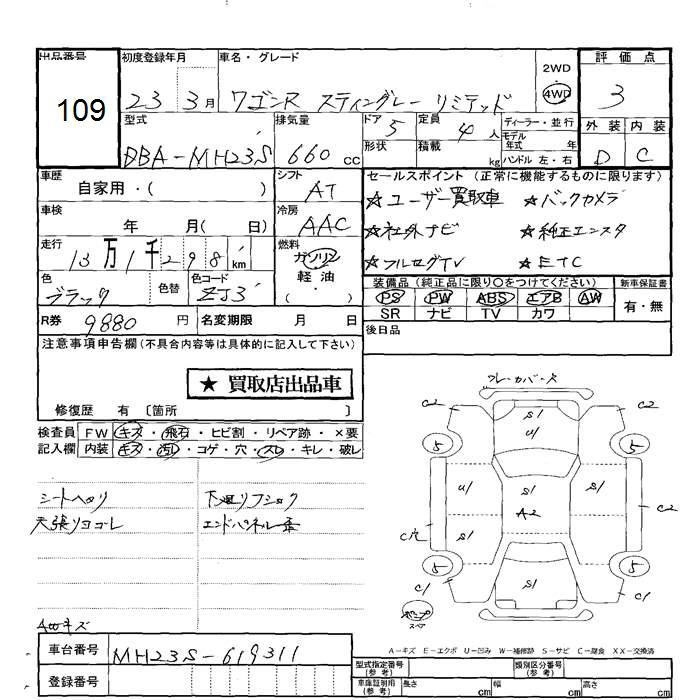 出品番号 109
初度登録年月 23 3月
車名・グレード ワゴンR スティングレー リミテッド
2WD 4WD
評価点 3
外装 内装
D C
型式 DBA-MH23S
排気量 660 cc
ドア 5
形状
定員 4人
積載 kg
ディーラー・並行
モデル年式 年
ハンドル 左・右
車歴 自家用・( )
シフト AT
車検 年 月( 日)
冷房 AAC
走行 13万1千298 km
燃料 ガソリン 軽油
色 ブラック
色替
色コード ZJ3
R券 9880 円
名変期限 月 日
セールスポイント(正常に機能するものに限ります)
☆ユーザー買取車 ☆バックカメラ
☆社外ナビ ☆純正エンスタ
☆フルセグTV ☆ETC
装備品(純正品に限り〇をつけてください)
PS PW ABS エアB AW
SR ナビ TV カワ
新車保証書 有・無
後日品
注意事項申告欄(不具合内容等は具体的に記入して下さい)
★ 買取店出品車
修復歴 有 〔箇所 〕
検査員記入欄
FW キズ・飛石・ヒビ割・リペア跡・×要
内装 キズ・汚・コゲ・穴・スレ・キレ・破レ
シートヘタリ 下廻りフショク
天張りヨゴレ エンドパネル歪
AWキズ
フレームカバー欠
S1
U1
C2 C2
5 5
U1 S1 S1
A2
C2
C穴 S1
5 5
C1 S1 C1
スペア
A-キズ E-エクボ U-凹み W-補修跡 S-サビ C-腐食 XX-交換済
車台番号 MH23S-619311
登録番号
型式指定番号(参考)
類別区分番号(参考)
車庫証明用(参考) 長さ cm 幅 cm 高さ cm